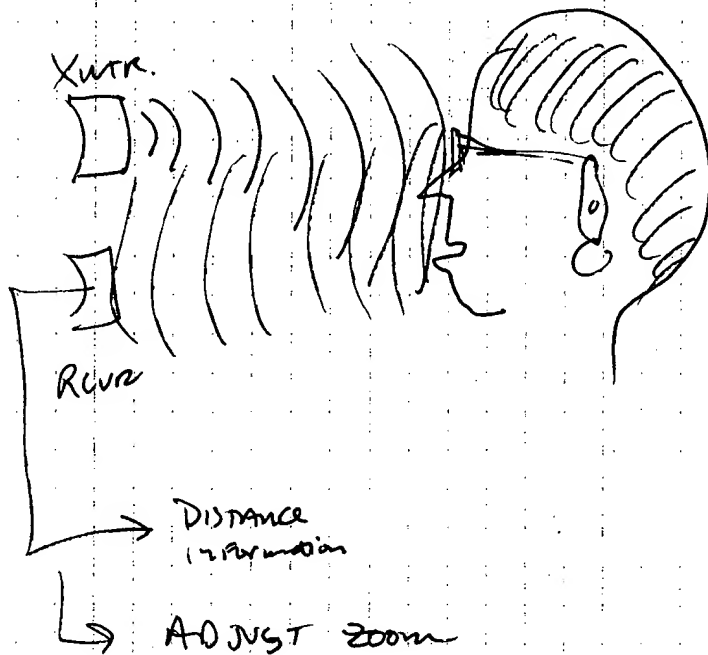 XMTR.
RCVR
DISTANCE
information
ADJUST ZOOM